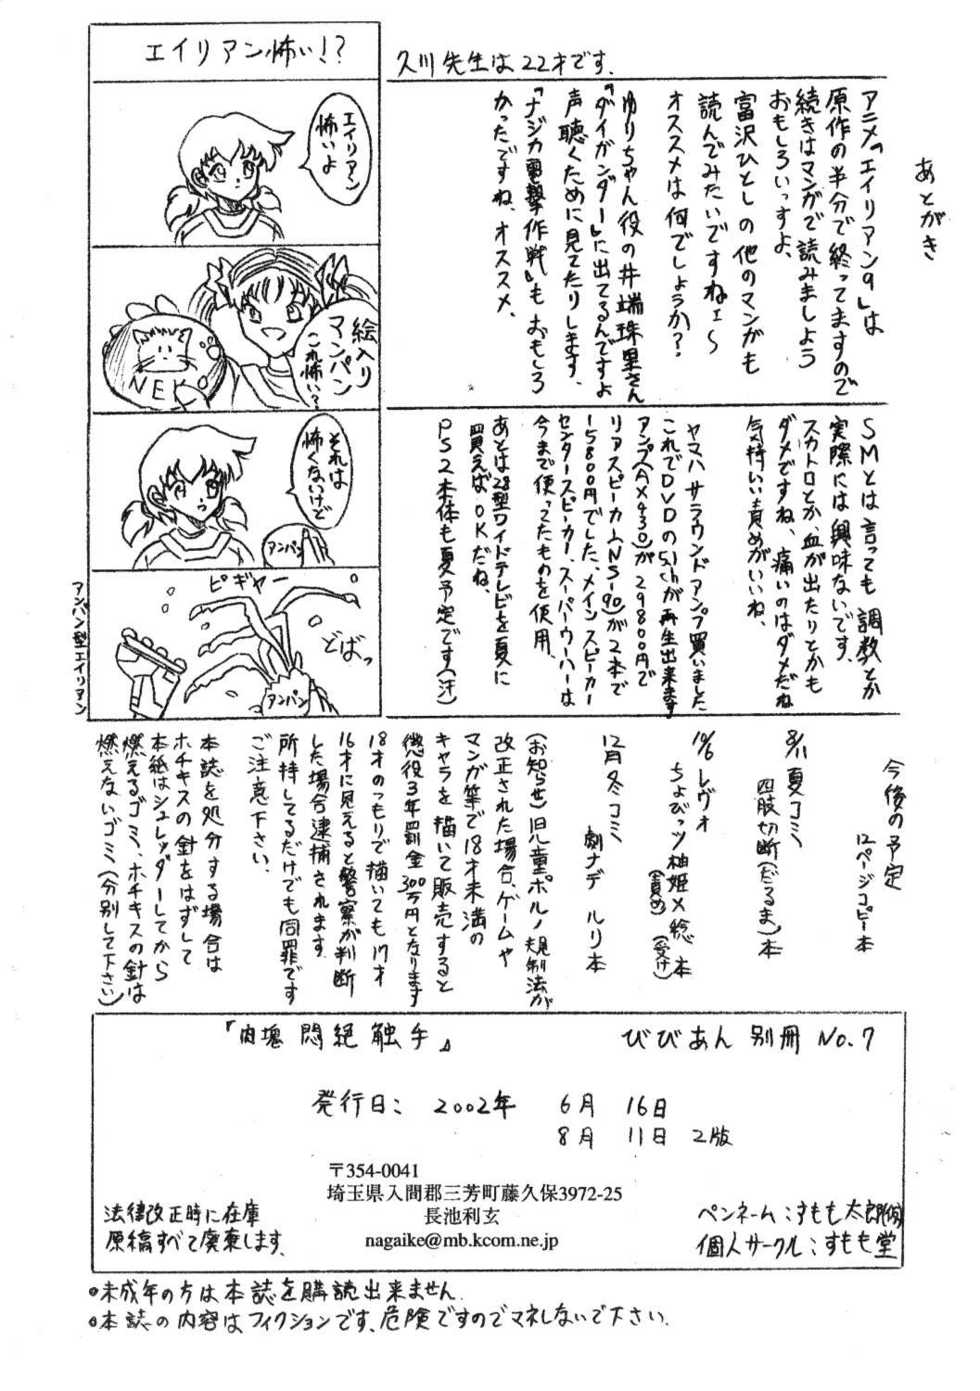 エイリアン怖い!?
エイリアン
怖いよ
絵入り
マンパン
これ怖い?
NEK
それは
怖くないけど
アンパン
ピギャー
どばっ
アンパン
アンパン型エイリアン
久川先生は22才です.
あとがき
アニメ『エイリアン9』は
原作の半分で終ってますので
続きはマンガで読みましょう
おもしろいっすよ、
富沢ひとしの他のマンガも
読んでみたいですねェ〜
オススメは何でしょうか?
ゆりちゃん役の井端珠里さん
『ダイガンダー』に出てるんですよ
声聴くために見てたりします、
『ナジカ電撃作戦』もおもしろ
かったですね、オススメ、
SMとは言っても調教とか
実際には興味ないです、
スカトロとか、血が出たりとかも
ダメですね、痛いのはダメだね
気持いい責めがいいね、
ヤマハサラウンドアンプ買いました
これでDVDの5.1chが再生出来ます
アンプ(AX930)が29800円で
リアスピーカー(NS90)が2本で
15800円でした、メインスピーカー
センタースピーカー、スーパーウーハーは
今まで使ってたものを使用、
あとは28型ワイドテレビを夏に
買えばOKだね、
PS2本体も夏予定です(汗)
今後の予定
12ページコピー本
8/11夏コミ
四肢切断(だるま)本
10/6レヴォ
ちょびっツ柚姫×稔本
(責め)(受け)
12月冬コミ
劇ナデ ルリ本
(お知らせ)旧児童ポルノ規制法が
改正された場合、ゲームや
マンガ等で18才未満の
キャラを描いて販売すると
懲役3年罰金300万円となります
18才のつもりで描いても17才
16才に見えると警察が判断
した場合逮捕されます
所持してるだけでも同罪です
ご注意下さい.
本誌を処分する場合は
ホチキスの針をはずして
本紙はシュレッダーしてから
燃えるゴミ、ホチキスの針は
燃えないゴミ(分別して下さい)
『肉塊悶絶触手』
びびあん別冊 No.7
発行日: 2002年 6月 16日
8月 11日 2版
〒354-0041
埼玉県入間郡三芳町藤久保3972-25
長池利玄
nagaike@mb.kcom.ne.jp
法律改正時に在庫
原稿すべて廃棄します.
ペンネーム:すもも太郎(仮)
個人サークル:すもも堂
○未成年の方は本誌を購読出来ません.
○本誌の内容はフィクションです、危険ですのでマネしないで下さい.